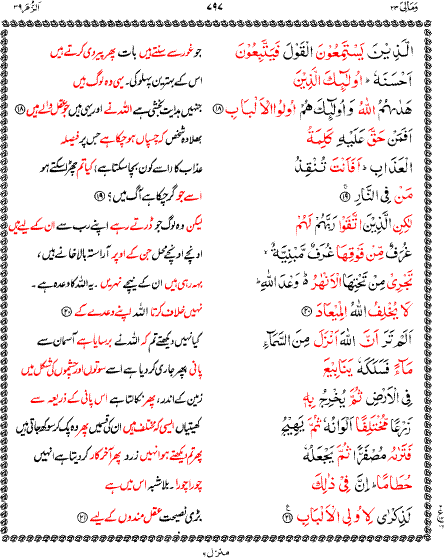 وَمَالِیَ ۲۳
۷۹۷
اَلزُّمَر ۳۹
الَّذِیْنَ یَسْتَمِعُوْنَ الْقَوْلَ فَیَتَّبِعُوْنَ
اَحْسَنَهٗ ؕ اُولٰٓئِكَ الَّذِیْنَ
هَدٰىهُمُ اللّٰهُ وَ اُولٰٓئِكَ هُمْ اُولُوا الْاَلْبَابِ ﴿۱۸﴾
اَفَمَنْ حَقَّ عَلَیْهِ كَلِمَةُ
الْعَذَابِ ؕ اَفَاَنْتَ تُنْقِذُ
مَنْ فِی النَّارِ ﴿۱۹﴾
لٰكِنِ الَّذِیْنَ اتَّقَوْا رَبَّهُمْ لَهُمْ
غُرَفٌ مِّنْ فَوْقِهَا غُرَفٌ مَّبْنِیَّةٌ ۙ
تَجْرِیْ مِنْ تَحْتِهَا الْاَنْهٰرُ ؕ وَعْدَ اللّٰهِ ؕ
لَا یُخْلِفُ اللّٰهُ الْمِیْعَادَ ﴿۲۰﴾
اَلَمْ تَرَ اَنَّ اللّٰهَ اَنْزَلَ مِنَ السَّمَآءِ
مَآءً فَسَلَكَهٗ یَنَابِیْعَ
فِی الْاَرْضِ ثُمَّ یُخْرِجُ بِهٖ
زَرْعًا مُّخْتَلِفًا اَلْوَانُهٗ ثُمَّ یَهِیْجُ
فَتَرٰىهُ مُصْفَرًّا ثُمَّ یَجْعَلُهٗ
حُطَامًا ؕ اِنَّ فِیْ ذٰلِكَ
لَذِكْرٰی لِاُولِی الْاَلْبَابِ ﴿۲۱﴾
جو غور سے سنتے ہیں بات پھر پیروی کرتے ہیں
اس کے بہترین پہلو کی۔ یہی وہ لوگ ہیں
جنہیں ہدایت بخشی ہے اللہ نے اور یہی ہیں جو عقل والے ہیں ﴿۱۸﴾
بھلا وہ شخص کہ چسپاں ہو چکا ہے جس پر فیصلہ
عذاب کا (اسے کون بچا سکتا ہے) کیا تم چھڑا سکتے ہو
اسے جو گر چکا ہے آگ میں؟ ﴿۱۹﴾
لیکن وہ لوگ جو ڈرتے رہے اپنے رب سے ان کے لیے ہیں
اونچے اونچے محل جن کے اوپر آراستہ بالا خانے ہیں،
بہہ رہی ہیں ان کے نیچے نہریں۔ یہ اللہ کا وعدہ ہے۔
نہیں خلاف کرتا اللہ اپنے وعدے کے ﴿۲۰﴾
کیا نہیں دیکھتے تم کہ اللہ نے برسایا ہے آسمان سے
پانی پھر جاری کر دیا ہے اسے سوتوں اور چشموں کی شکل میں
زمین کے اندر، پھر نکالتا ہے اس پانی کے ذریعہ سے
کھیتیاں ایسی کہ مختلف ہیں ان کی قسمیں پھر وہ پک کر سوکھ جاتی ہیں
پھر تم دیکھتے ہو انہیں زرد پھر آخر کار کر دیتا ہے انہیں
چورا چورا۔ بلاشبہ اس میں ہے
بڑی نصیحت عقل مندوں کے لیے ﴿۲۱﴾
منزل ۶